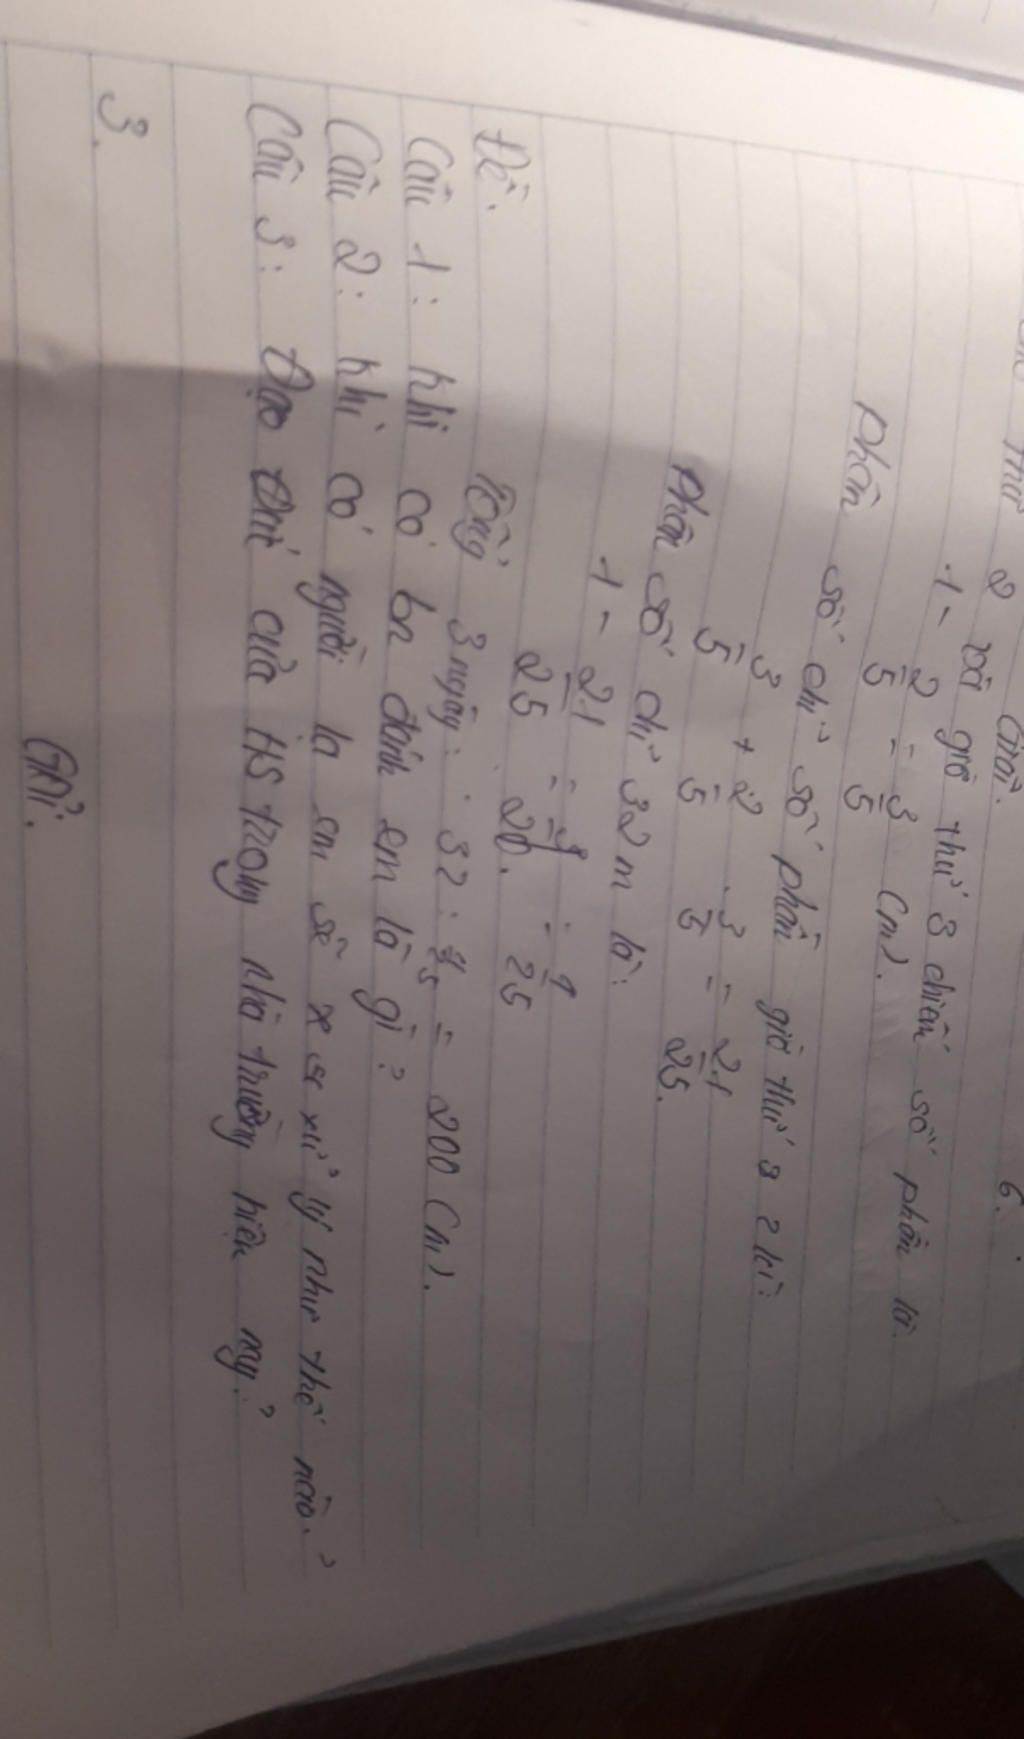 Giải.
2 với giờ thứ 3 chiếm số phần là
1 - 2/5 = 3/5 (m).
Phân số chỉ số phần giờ thứ 3 là:
3/5 + 2/5 . 3/5 = 21/25.
Phân số chỉ 32 m là:
1 - 21/25 = = 4/25
Tổng 3 ngày: 32 : 4/25 = 200 (m).
Đề.
Câu 1: khi có bn đánh em là gì?
Câu 2: khi có người lạ em sẽ x se xử lý như thế nào?
Câu 3: Đạo đức của HS trong nhà trường hiện ny?
3.
GIẢI.